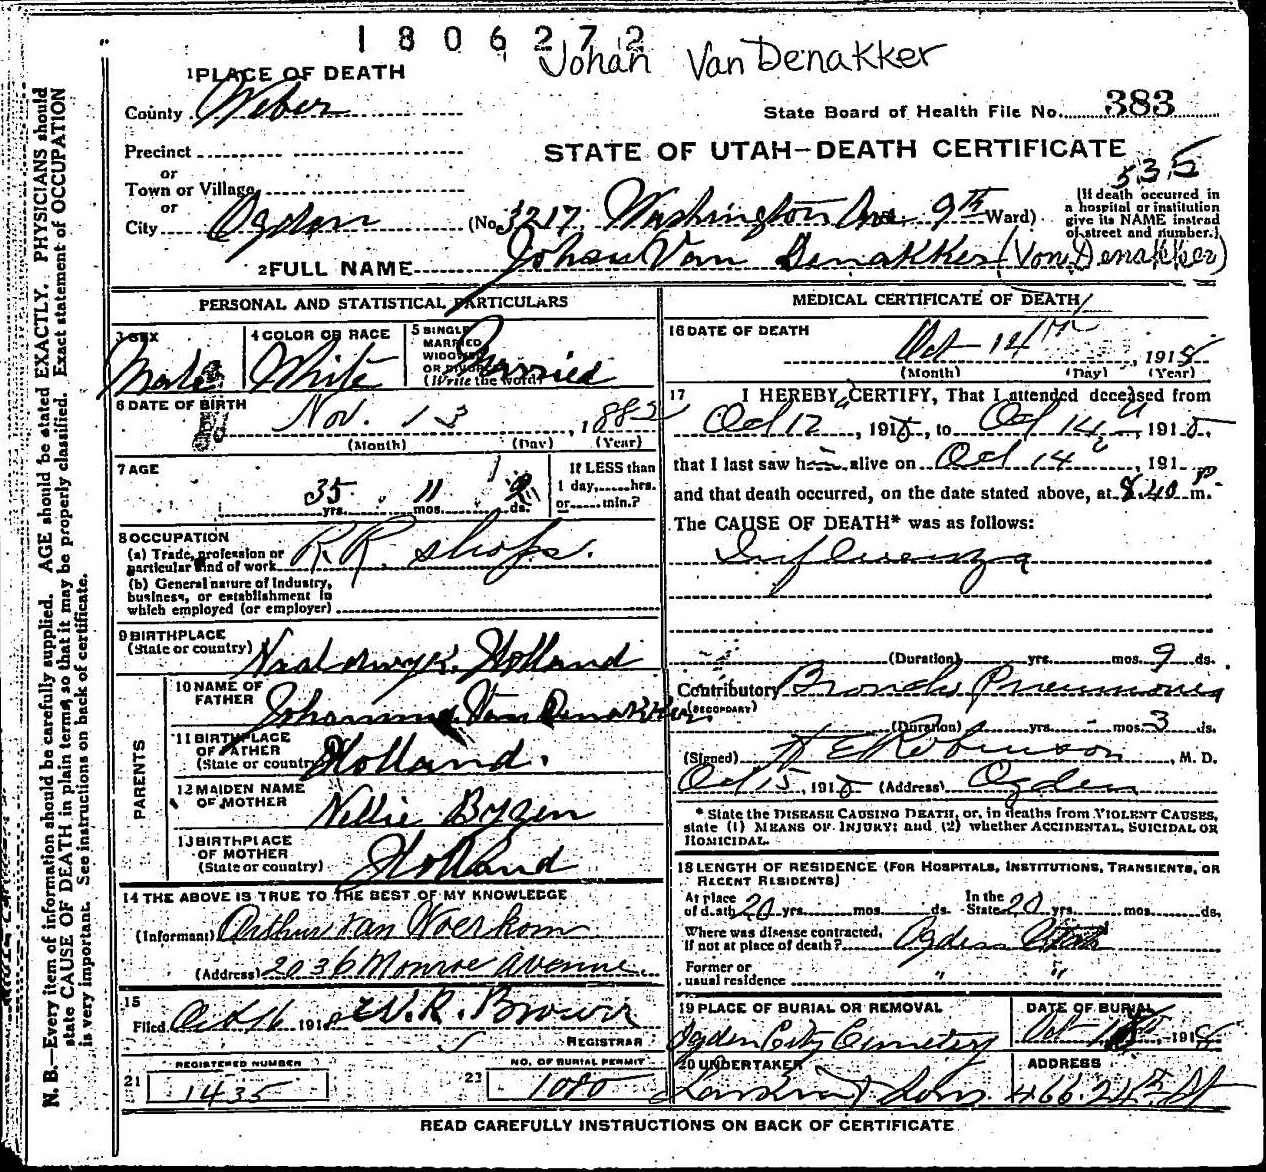 1806272
Johan Van Denakker
1 PLACE OF DEATH
County Weber
State Board of Health File No. 383
Precinct
STATE OF UTAH—DEATH CERTIFICATE
535
or
Town or Village
or
City Ogden (No. 3217 Washington Ave. 9th Ward)
[If death occurred in
a hospital or institution
give its NAME instead
of street and number.]
2 FULL NAME Johan Van Denakker (Von Denakker)
PERSONAL AND STATISTICAL PARTICULARS
3 SEX Male
4 COLOR OR RACE White
5 SINGLE
MARRIED
WIDOWED
OR DIVORCED
(Write the word) Married
6 DATE OF BIRTH
Nov. 13, 1882
(Month) (Day) (Year)
7 AGE
35 yrs. 11 mos. ds.
If LESS than
1 day, hrs.
or min.?
8 OCCUPATION
(a) Trade, profession or
particular kind of work R.R. shops.
(b) General nature of industry,
business, or establishment in
which employed (or employer)
9 BIRTHPLACE
(State or country) Holland
PARENTS
10 NAME OF
FATHER Van Denakker
11 BIRTHPLACE
OF FATHER
(State or country) Holland.
12 MAIDEN NAME
OF MOTHER Nellie Byzen
13 BIRTHPLACE
OF MOTHER
(State or country) Holland
14 THE ABOVE IS TRUE TO THE BEST OF MY KNOWLEDGE
(Informant) Arthur Van Woerkom
(Address) 2036 Monroe Avenue
15
Filed Oct 16 1918 W. R. Brown
REGISTRAR
REGISTERED NUMBER
21 1435
NO. OF BURIAL PERMIT
22 1080
MEDICAL CERTIFICATE OF DEATH
16 DATE OF DEATH
Oct 14th 1918
(Month) (Day) (Year)
17 I HEREBY CERTIFY, That I attended deceased from
Oct 12, 1918, to Oct 14, 1918,
that I last saw him alive on Oct 14, 191
and that death occurred, on the date stated above, at 8.40 P. m.
The CAUSE OF DEATH* was as follows:
Influenza
(Duration) yrs. mos. 9 ds.
Contributory Broncho Pneumonia
(SECONDARY)
(Duration) yrs. mos. 3 ds.
(Signed) H E Robinson, M. D.
Oct 15, 1918 (Address) Ogden
* State the DISEASE CAUSING DEATH, or, in deaths from VIOLENT CAUSES,
state (1) MEANS OF INJURY; and (2) whether ACCIDENTAL, SUICIDAL OR
HOMICIDAL.
18 LENGTH OF RESIDENCE (FOR HOSPITALS, INSTITUTIONS, TRANSIENTS, OR
RECENT RESIDENTS)
At place
of death 20 yrs. mos. ds.
In the
State 20 yrs. mos. ds.
Where was disease contracted,
if not at place of death? Ogden Utah
Former or
usual residence " "
19 PLACE OF BURIAL OR REMOVAL
Ogden City Cemetery
DATE OF BURIAL
Oct 1918
20 UNDERTAKER
Larkin & Sons.
ADDRESS
466. 24th St
READ CAREFULLY INSTRUCTIONS ON BACK OF CERTIFICATE
N. B.—Every item of information should be carefully supplied. AGE should be stated EXACTLY. PHYSICIANS should
state CAUSE OF DEATH in plain terms, so that it may be properly classified. Exact statement of OCCUPATION
is very important. See instructions on back of certificate.